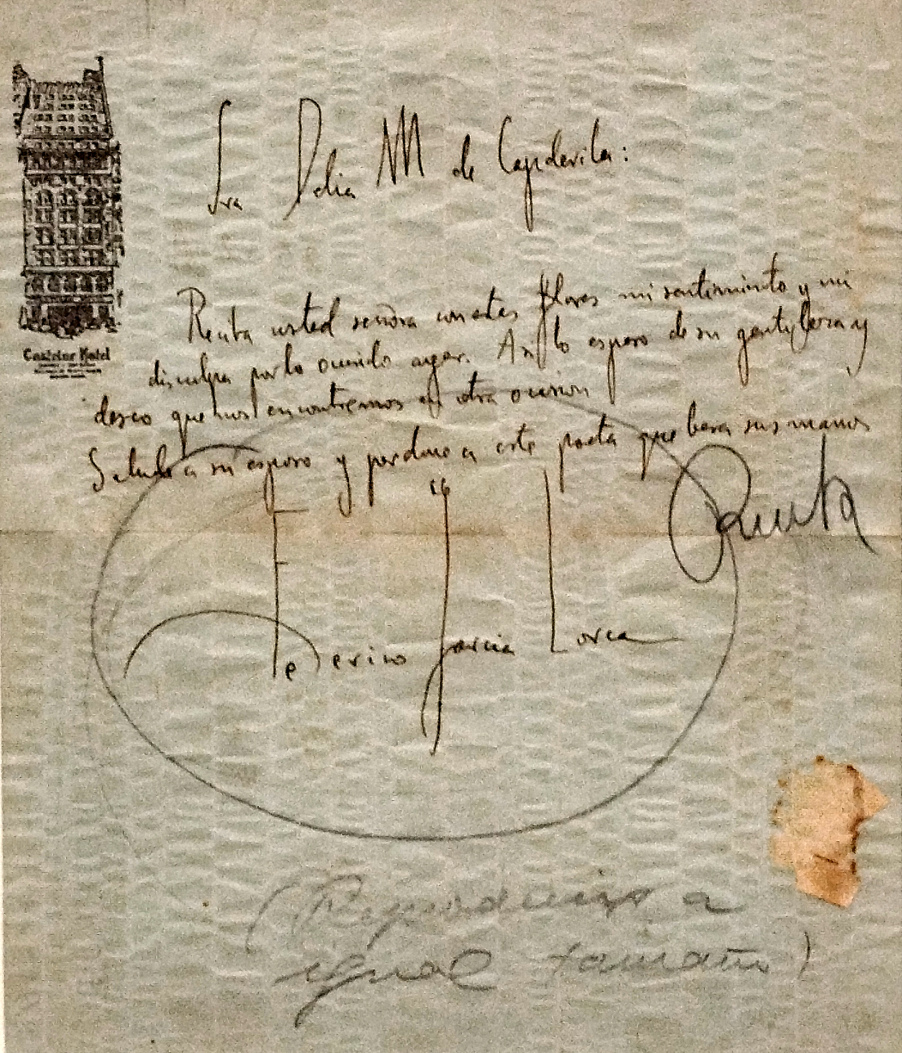 Castelar Hotel
Sra Delia M de Capdevila:
Reciba usted señora con estas flores mi sentimiento y mi
disculpa por lo ocurrido ayer. Así lo espero de su gentileza y
deseo que nos encontremos en otra ocasion
Salude a su esposo y perdone a este poeta que besa sus manos
Federico García Lorca
(Reproducirse a
igual tamaño)